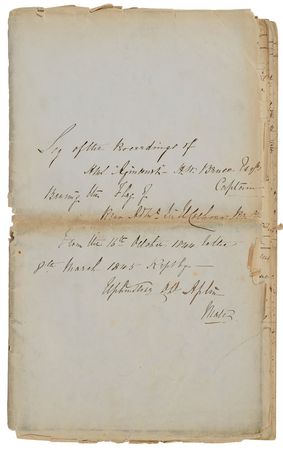 Log of the Proceedings of
HMS Agincourt H.W. Bruce Esqr
Captain
Bearing the Flag of
Rear Adl Sir Thos Cochrane
From the 16th October 1844 to the
8th March 1845 Kept by
Aplin
Mate